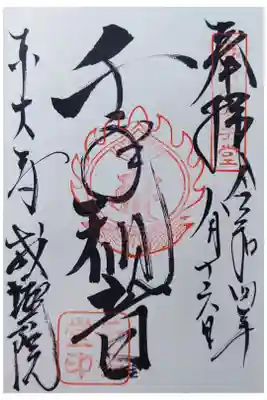 奉拝 令和四年
八月十六日
千手観音
東大寺 戒壇院